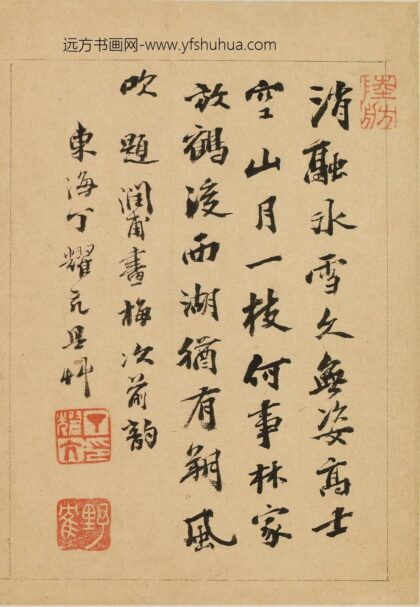 远方书画网-www.yfshuhua.com
陸舫
消融氷雪久無姿高士
空山月一枝何事林家
放鶴後西湖猶有朔風
吹 題潤甫畫梅次前韵
東海丁耀亢具艸
丁印耀亢
野鶴